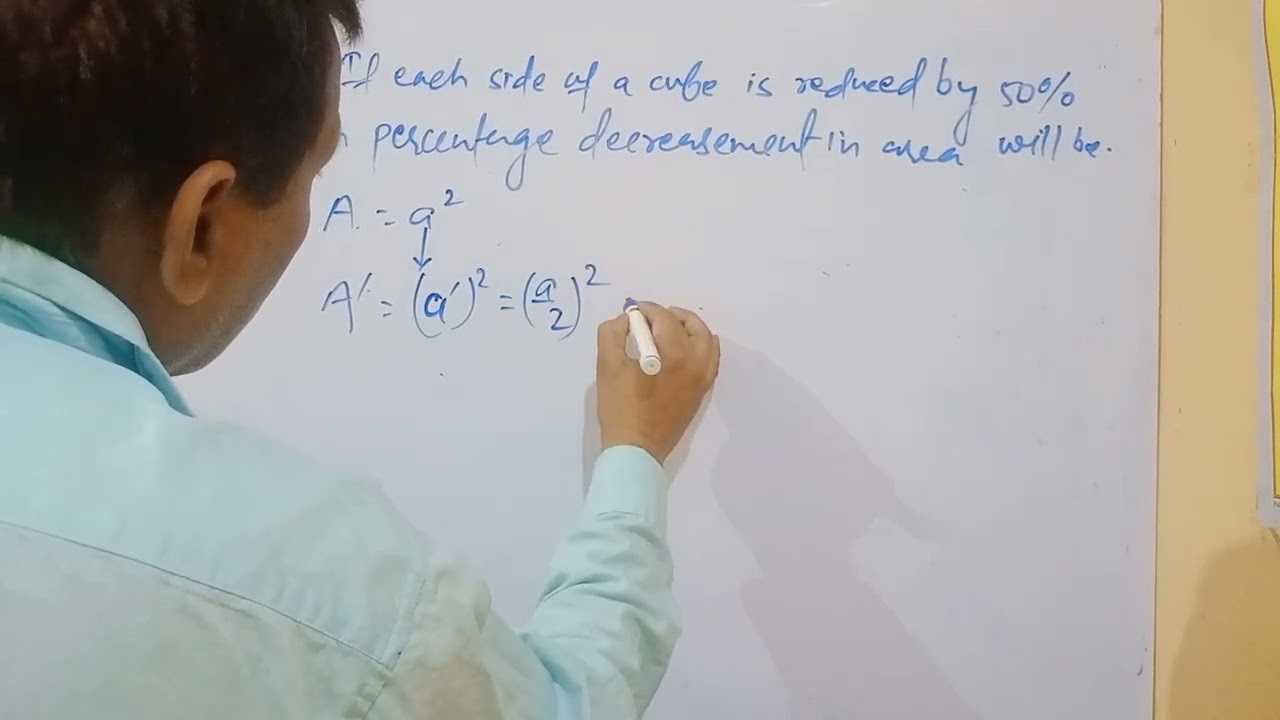 If each side of a cube is reduced by 50%
percentage decreasement in area will be.
A = a²
A' = (a')² = (a/2)²